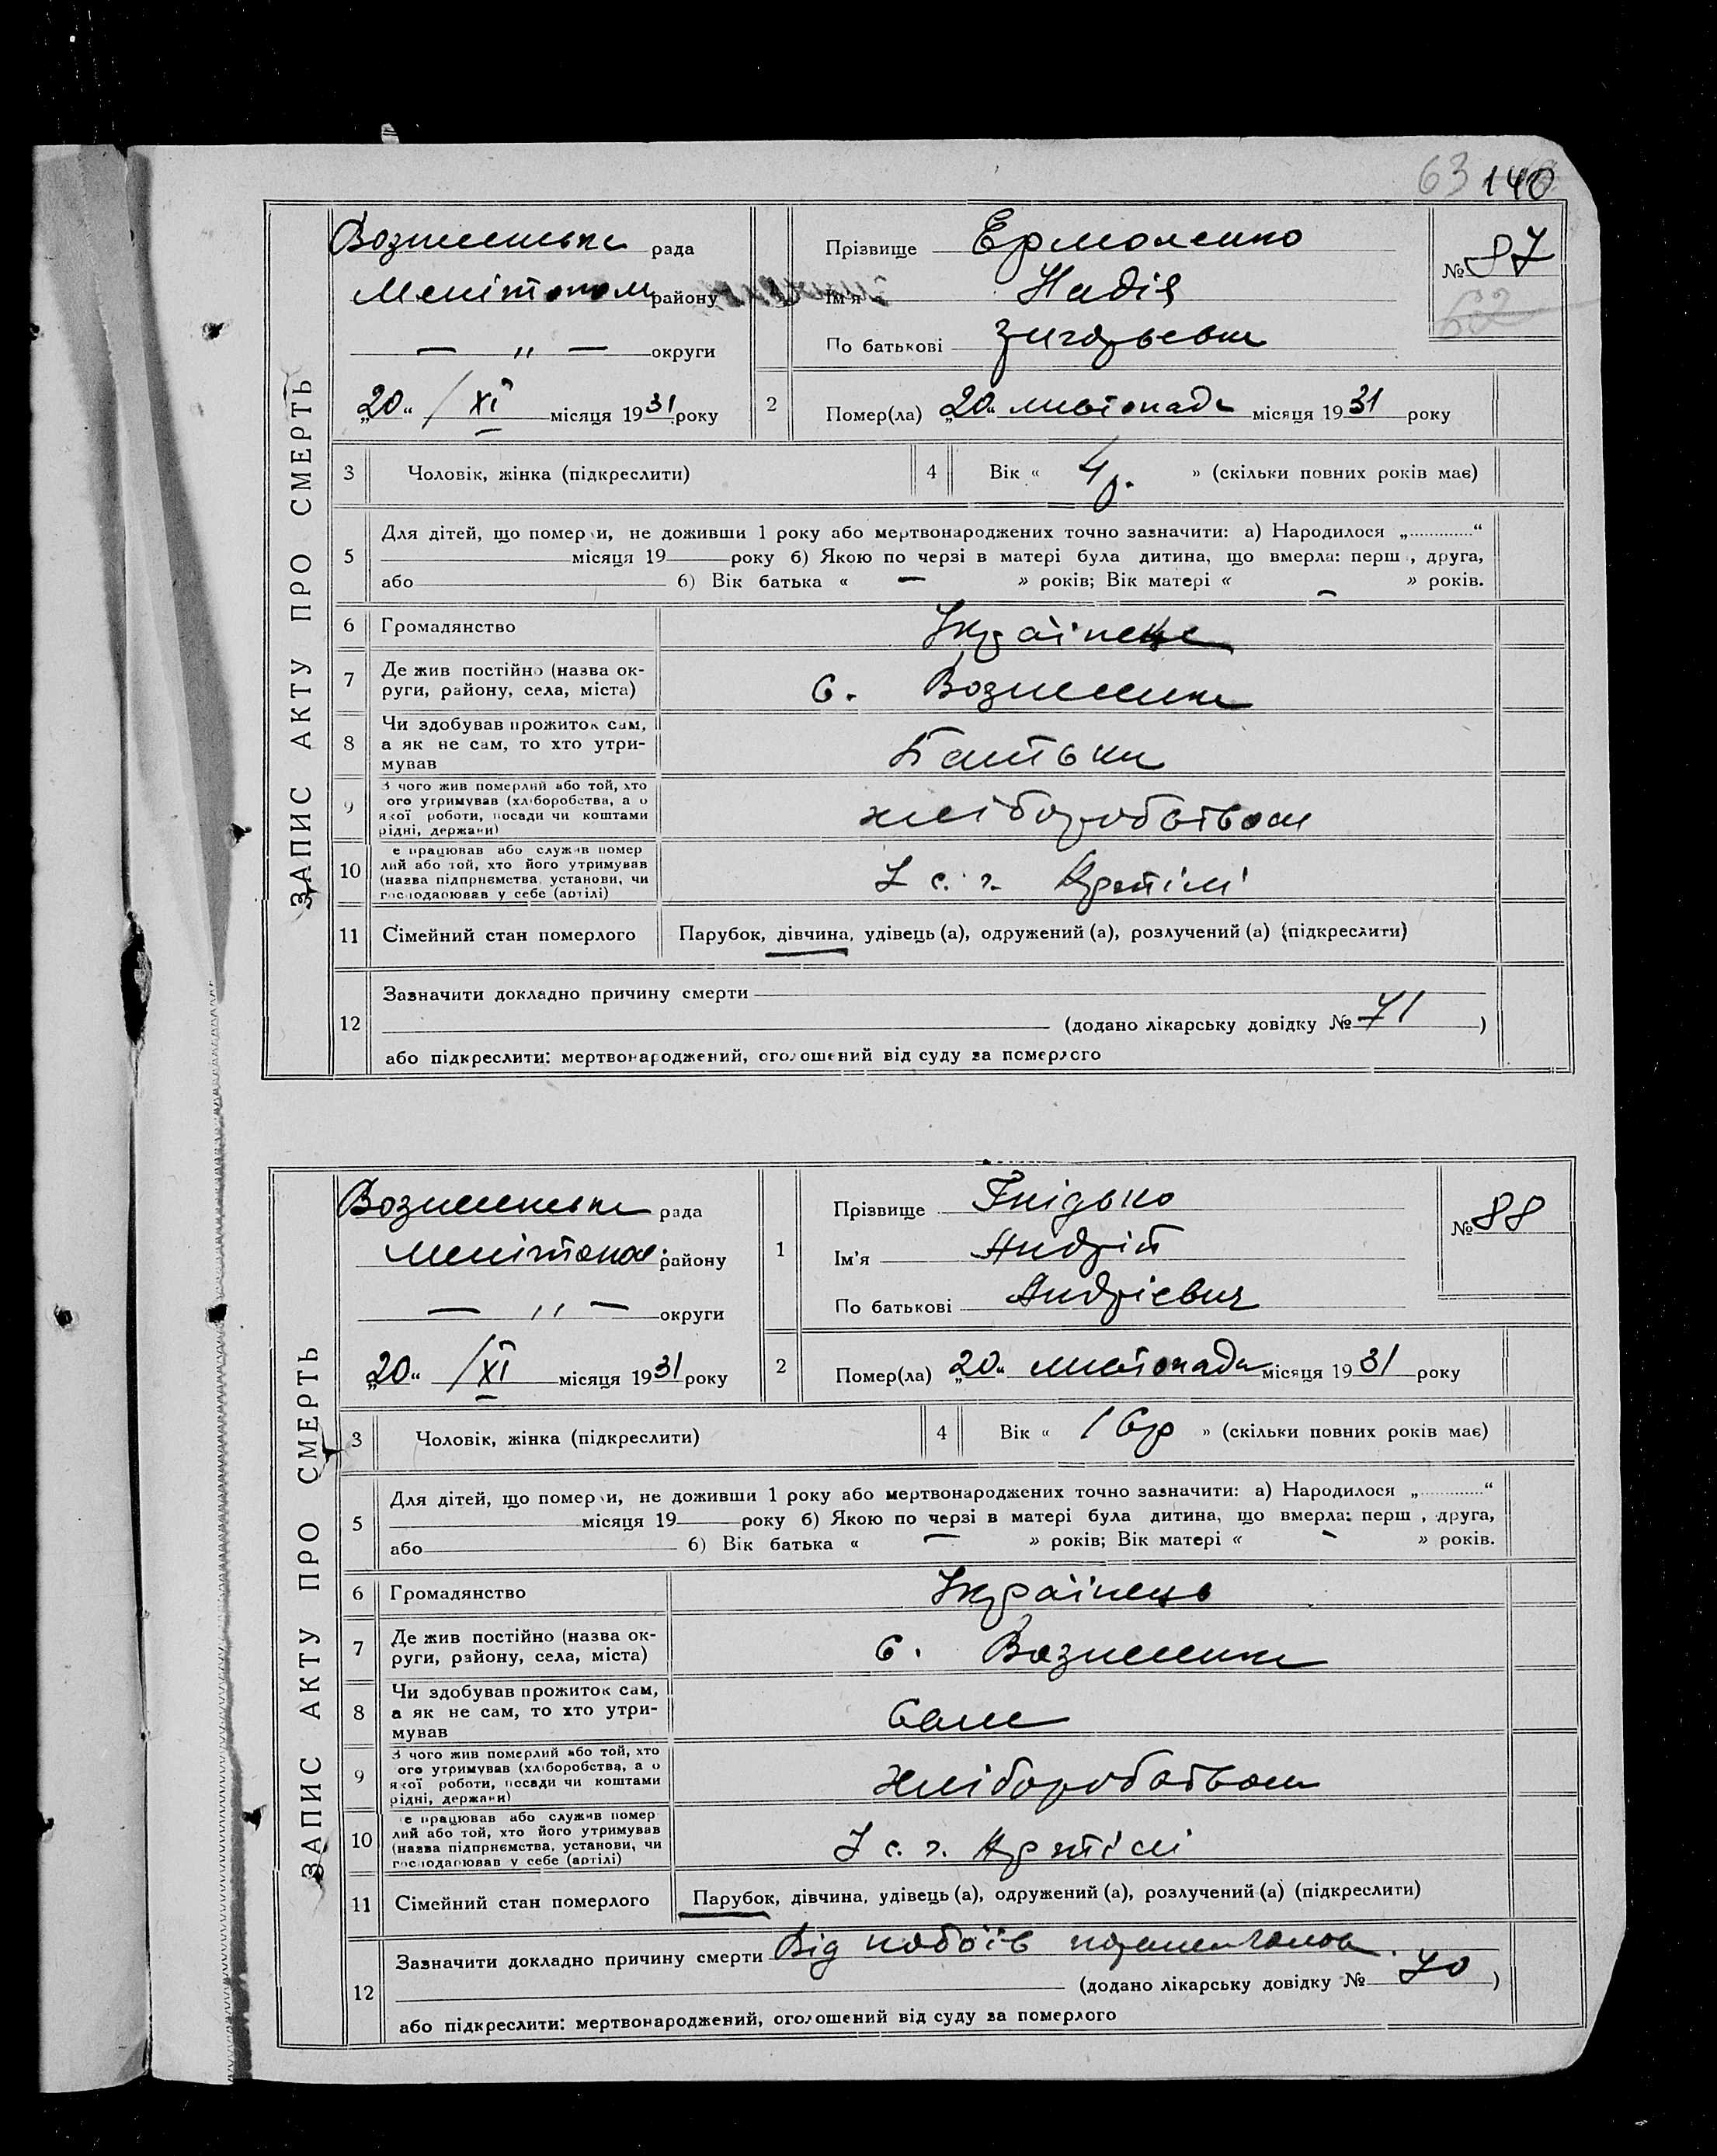 63 140
ЗАПИС АКТУ ПРО СМЕРТЬ
Вознесенська рада
Мелітопол району
— „ — округи
„20“ /XI місяця 1931 року
Прізвище Ермоленко
Ім'я Надія
По батькові
№ 87
62
2 Помер(ла) „20“ листопада місяця 1931 року
3 Чоловік, жінка (підкреслити)
4 Вік « 4 р. » (скільки повних років має)
5 Для дітей, що помер и, не доживши 1 року або мертвонароджених точно зазначити: а) Народилося „..........“
місяця 19 року б) Якою по черзі в матері була дитина, що вмерла: перш , друга,
або 6) Вік батька « — » років; Вік матері « — » років.
6 Громадянство Українец
7 Де жив постійно (назва ок-
руги, району, села, міста) с. Вознесенка
8 Чи здобував прожиток сам,
а як не сам, то хто утри-
мував Батьки
9 З чого жив померлий або той, хто
ого утримував (хліборобства, а о
якої роботи, посади чи коштами
рідні, держави) хліборобством
10 е працював або служив помер
лий або той, хто його утримував
(назва підприємства, установи, чи
господарював у себе (артілі) У с. г. Артілі
11 Сімейний стан померлого Парубок, дівчина, удівець (а), одружений (а), розлучений (а) (підкреслити)
12 Зазначити докладно причину смерти
(додано лікарську довідку № 71 )
або підкреслити: мертвонароджений, оголошений від суду за померлого
ЗАПИС АКТУ ПРО СМЕРТЬ
Вознесенська рада
Мелітопол. району
— „ — округи
„20“ /XI місяця 1931 року
1 Прізвище Гнідько
Ім'я Андрій
По батькові Андрієвич
№ 88
2 Помер(ла) „20“ листопада місяця 1931 року
3 Чоловік, жінка (підкреслити)
4 Вік « 16 р » (скільки повних років має)
5 Для дітей, що помер и, не доживши 1 року або мертвонароджених точно зазначити: а) Народилося „..........“
місяця 19 року б) Якою по черзі в матері була дитина, що вмерла: перш , друга,
або 6) Вік батька « — » років; Вік матері « — » років.
6 Громадянство Українець
7 Де жив постійно (назва ок-
руги, району, села, міста) с. Вознесенка
8 Чи здобував прожиток сам,
а як не сам, то хто утри-
мував Сам
9 З чого жив померлий або той, хто
ого утримував (хліборобства, а о
якої роботи, посади чи коштами
рідні, держави) хліборобством
10 е працював або служив помер
лий або той, хто його утримував
(назва підприємства, установи, чи
господарював у себе (артілі) У с. г. Артілі
11 Сімейний стан померлого Парубок, дівчина, удівець (а), одружений (а), розлучений (а) (підкреслити)
12 Зазначити докладно причину смерти Від побоїв
(додано лікарську довідку № 70 )
або підкреслити: мертвонароджений, оголошений від суду за померлого